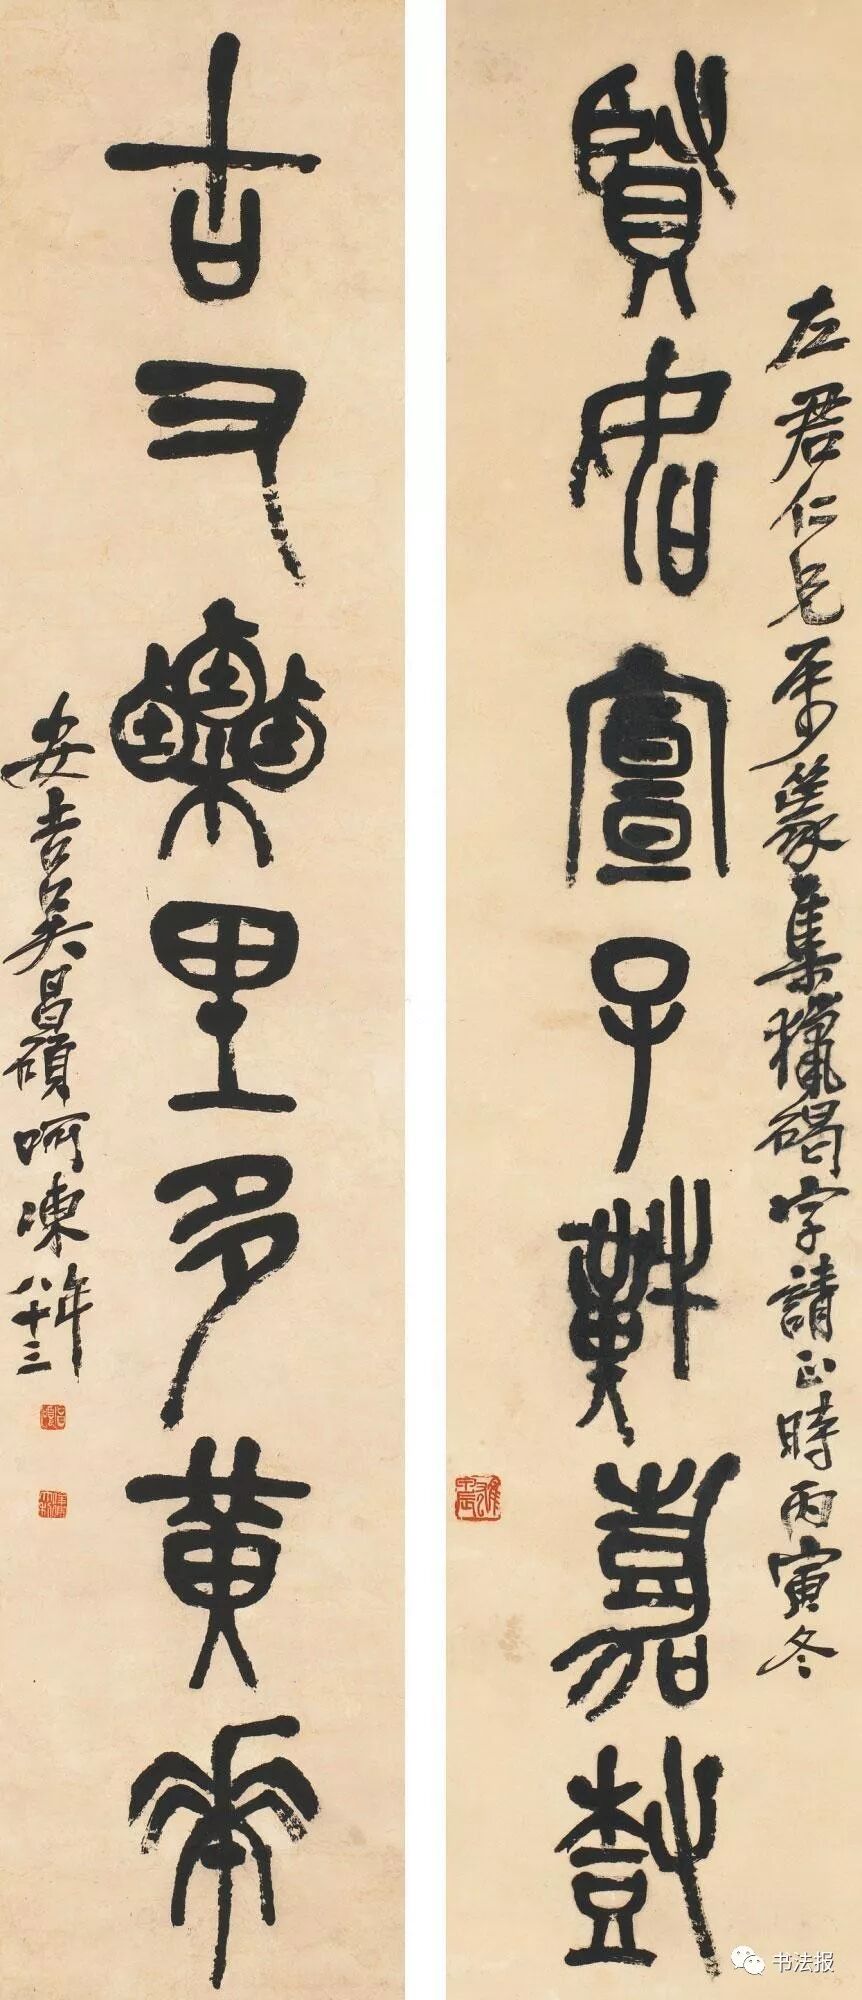 賢如宣子嘉樹
左君仁兄屬篆集獵碣字請正時丙寅冬
古又栗里多黄華
安吉吳昌碩呵凍年八十三
书法报